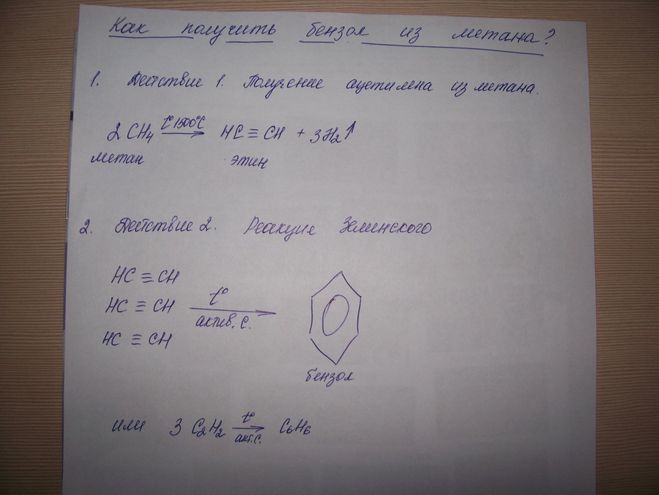 Как получить бензол из метана?
1. Действие 1. Получение ацетилена из метана.
2CH₄ t° 1500°C → HC≡CH + 3H₂↑
метан этин
2. Действие 2. Реакция Зелинского
HC≡CH
HC≡CH t° →
актив. C.
HC≡CH
бензол
или 3 C₂H₂ t° → C₆H₆
акт. C.